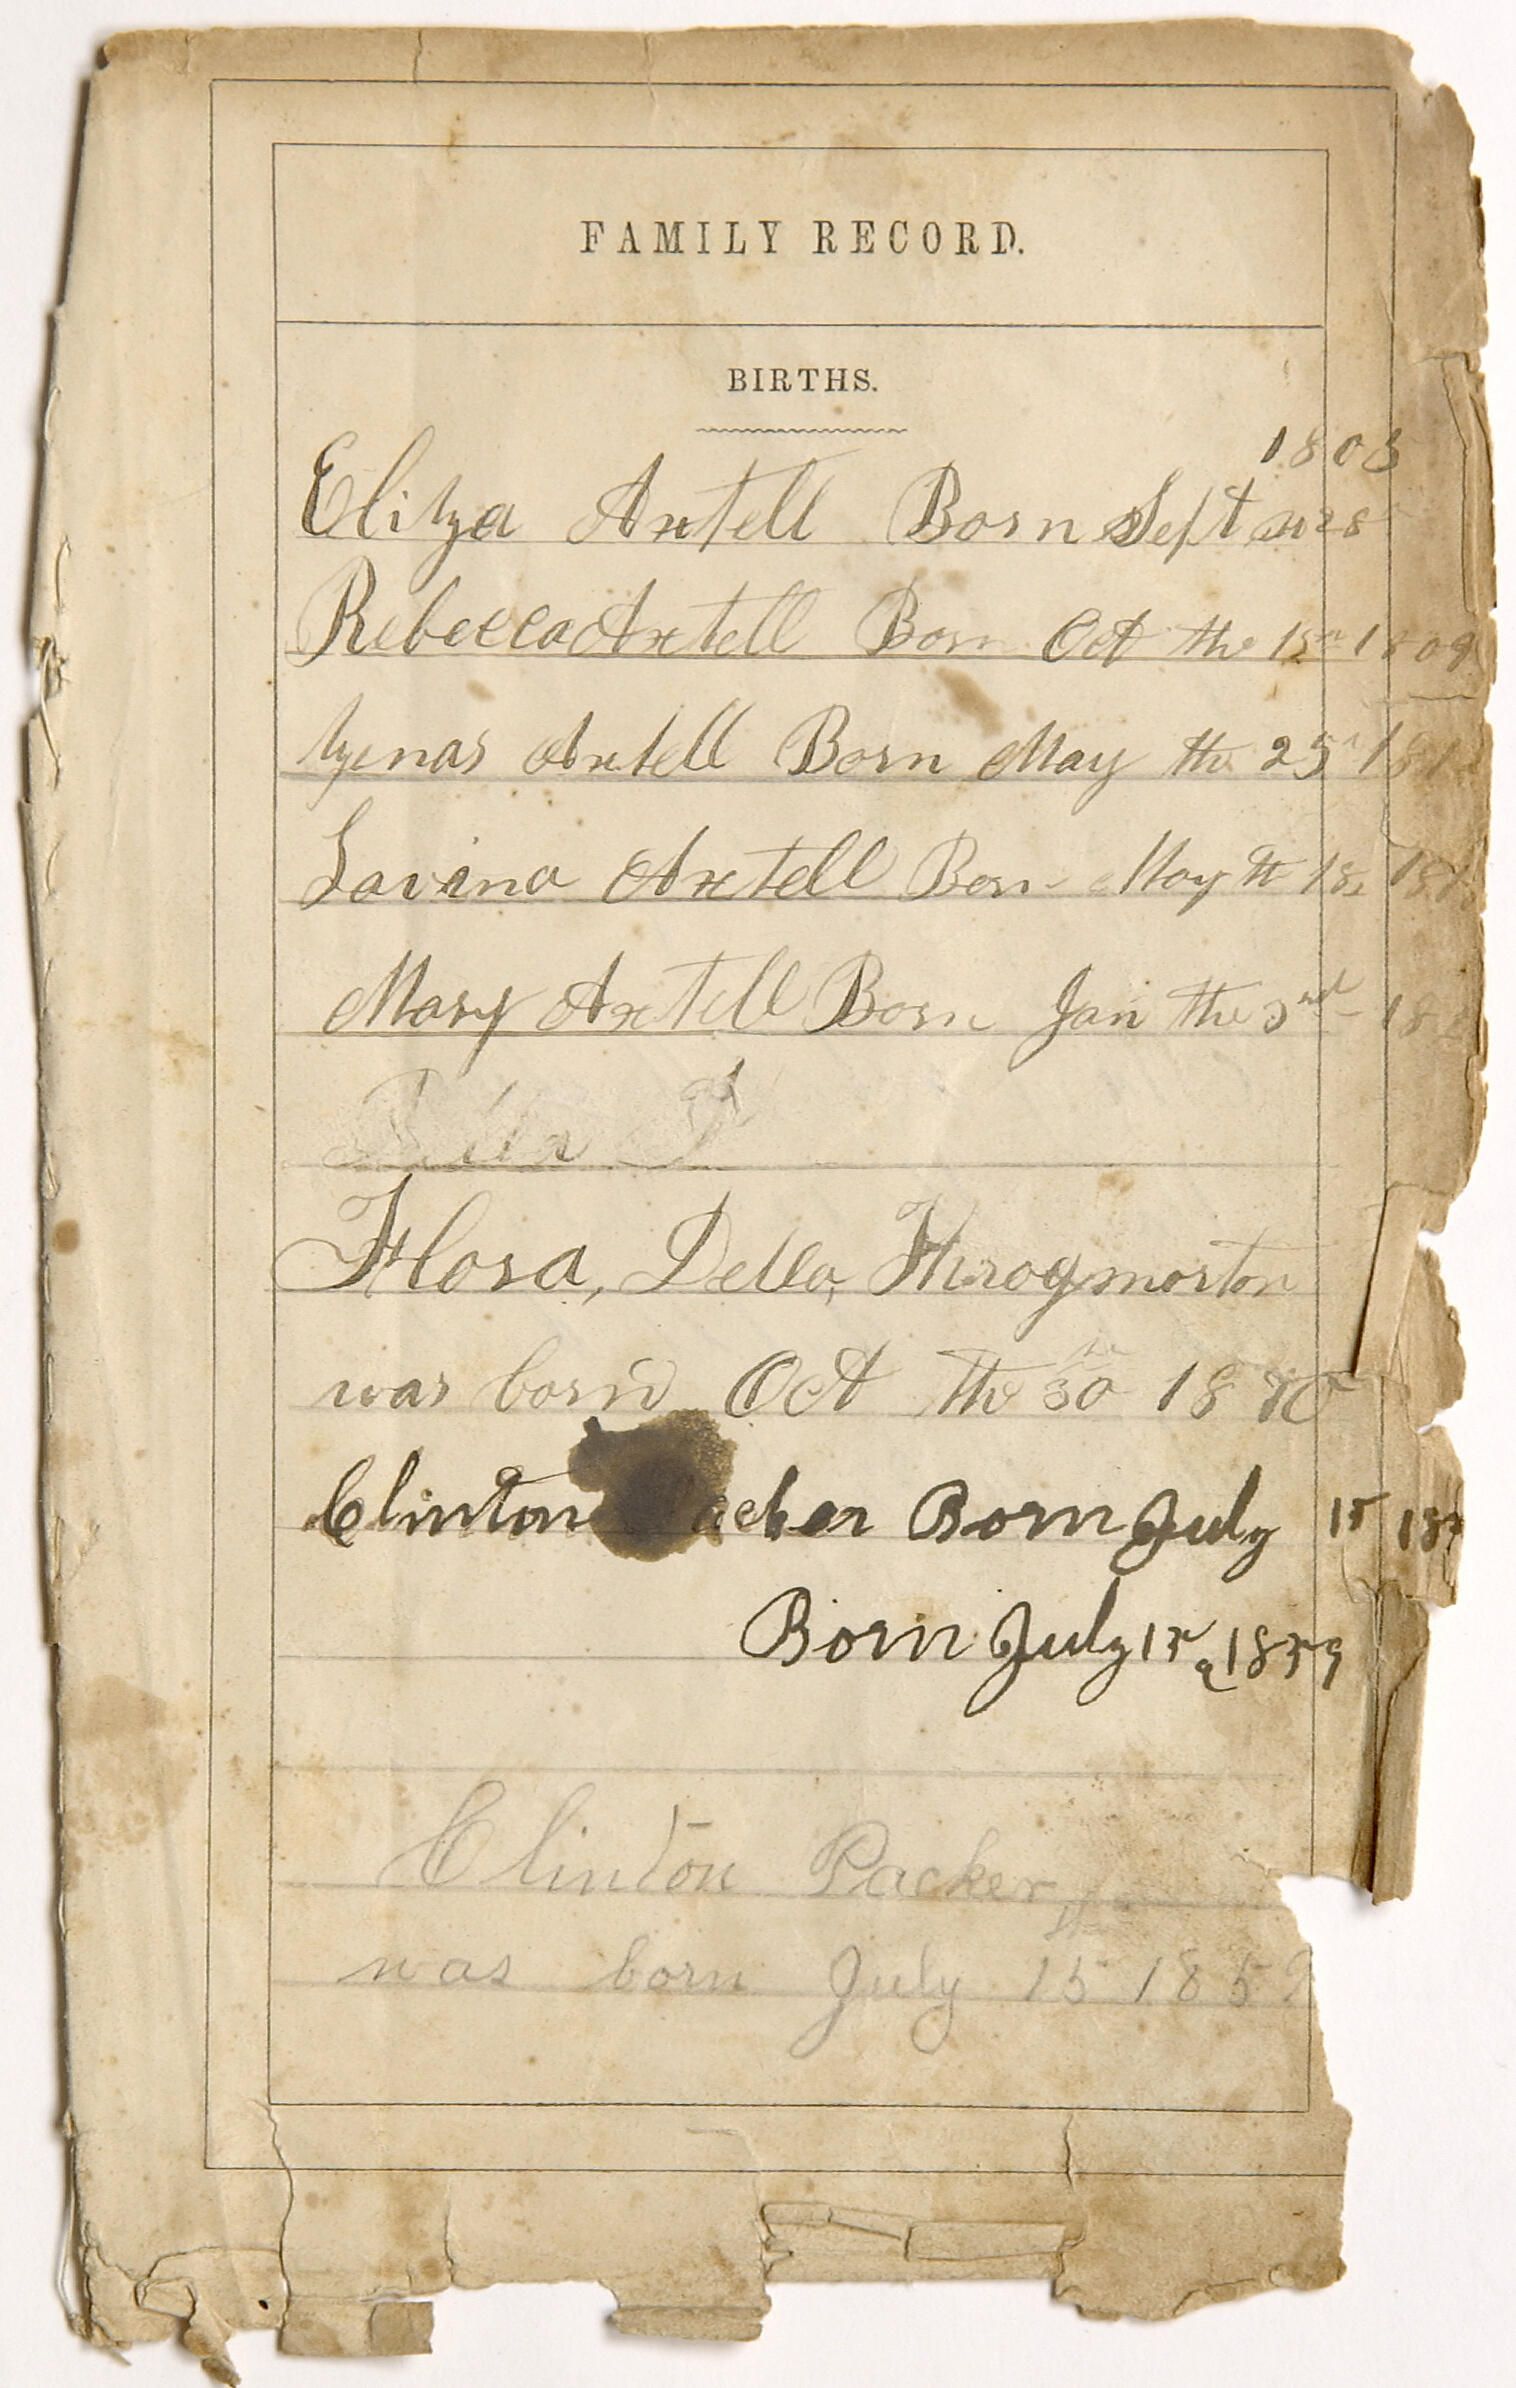 FAMILY RECORD.
BIRTHS.
1803
Elitza Axtell Born Sept 28
Rebecca Axtell Born Oct the 1809
tzenas Axtell Born May the 25
Lavina Axtell Born May th 18
Mary Axtell Born Jan the 3rd
Flora, Della, Throgmorton
was born Oct the 30 1880
Clinton acker Born July 15
Born July 15 1859
Clinton Packer
was born July 15 1859